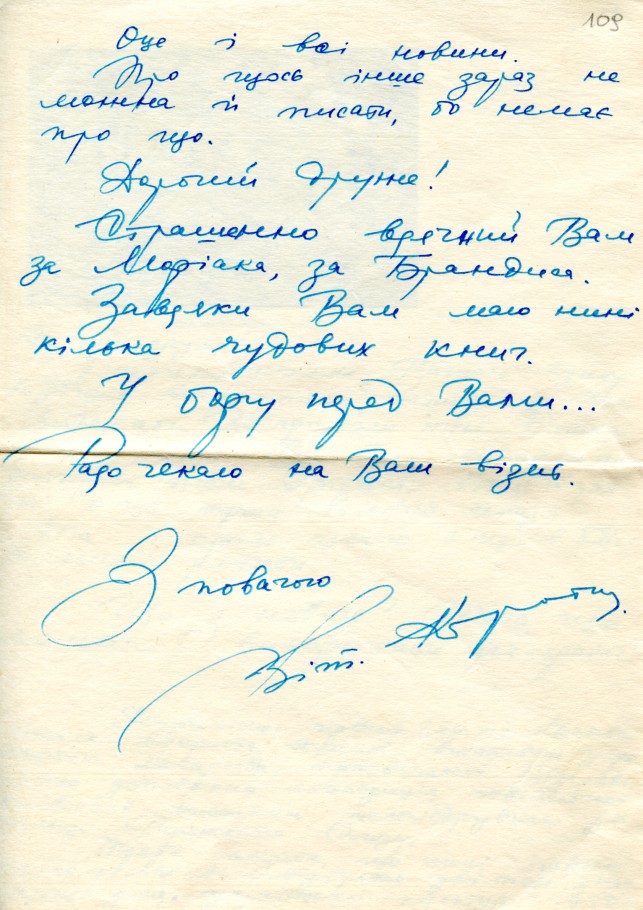 109
Оце і всі новини.
Про щось інше зараз не
можна й писати, бо немає
про що.
Дорогий друже!
Страшенно вдячний Вам
за Моріака, за Брандиса.
Завдяки Вам маю нині
кілька чудових книг.
У боргу перед Вами...
Радо чекаю на Ваш відгук.
З повагою
Віт. Коротич.